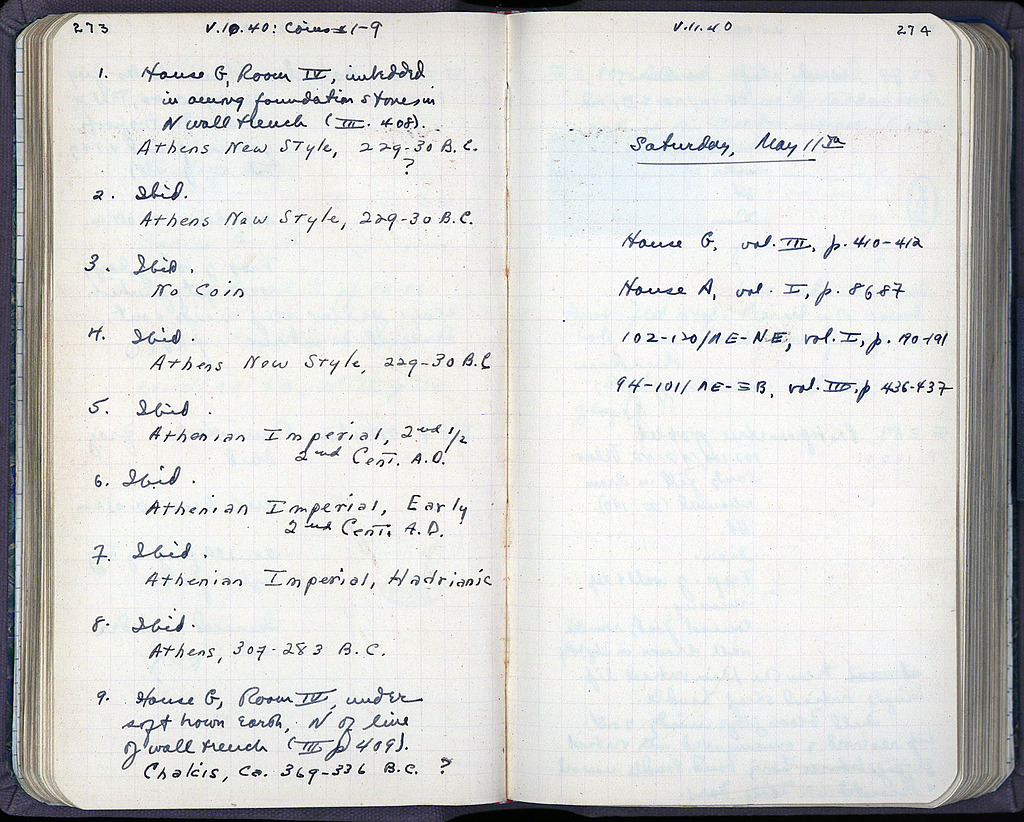 273
V.10.40: Coins 1-9
1. House G, Room IV, imbedded
in among foundation stones in
N wall trench (III. 408).
Athens New Style, 229-30 B.C.
?
2. Ibid.
Athens New Style, 229-30 B.C.
3. Ibid.
No Coin
4. Ibid.
Athens New Style, 229-30 B.C
5. Ibid.
Athenian Imperial, 2nd 1/2
2nd Cent. A.D.
6. Ibid.
Athenian Imperial, Early
2nd Cent. A.D.
7. Ibid.
Athenian Imperial, Hadrianic
8. Ibid.
Athens, 307-283 B.C.
9. House G, Room IV, under
soft brown earth, N of line
of wall trench (III p 409).
Chalcis, ca. 369-336 B.C. ?
V.11.40
274
Saturday, May 11th
House G, vol. III, p. 410-412
House A, vol. I, p. 86 87
102-120/ΛE-NE, vol. I, p. 190-191
94-101/ΛE-ΞB, vol. III, p 436-437